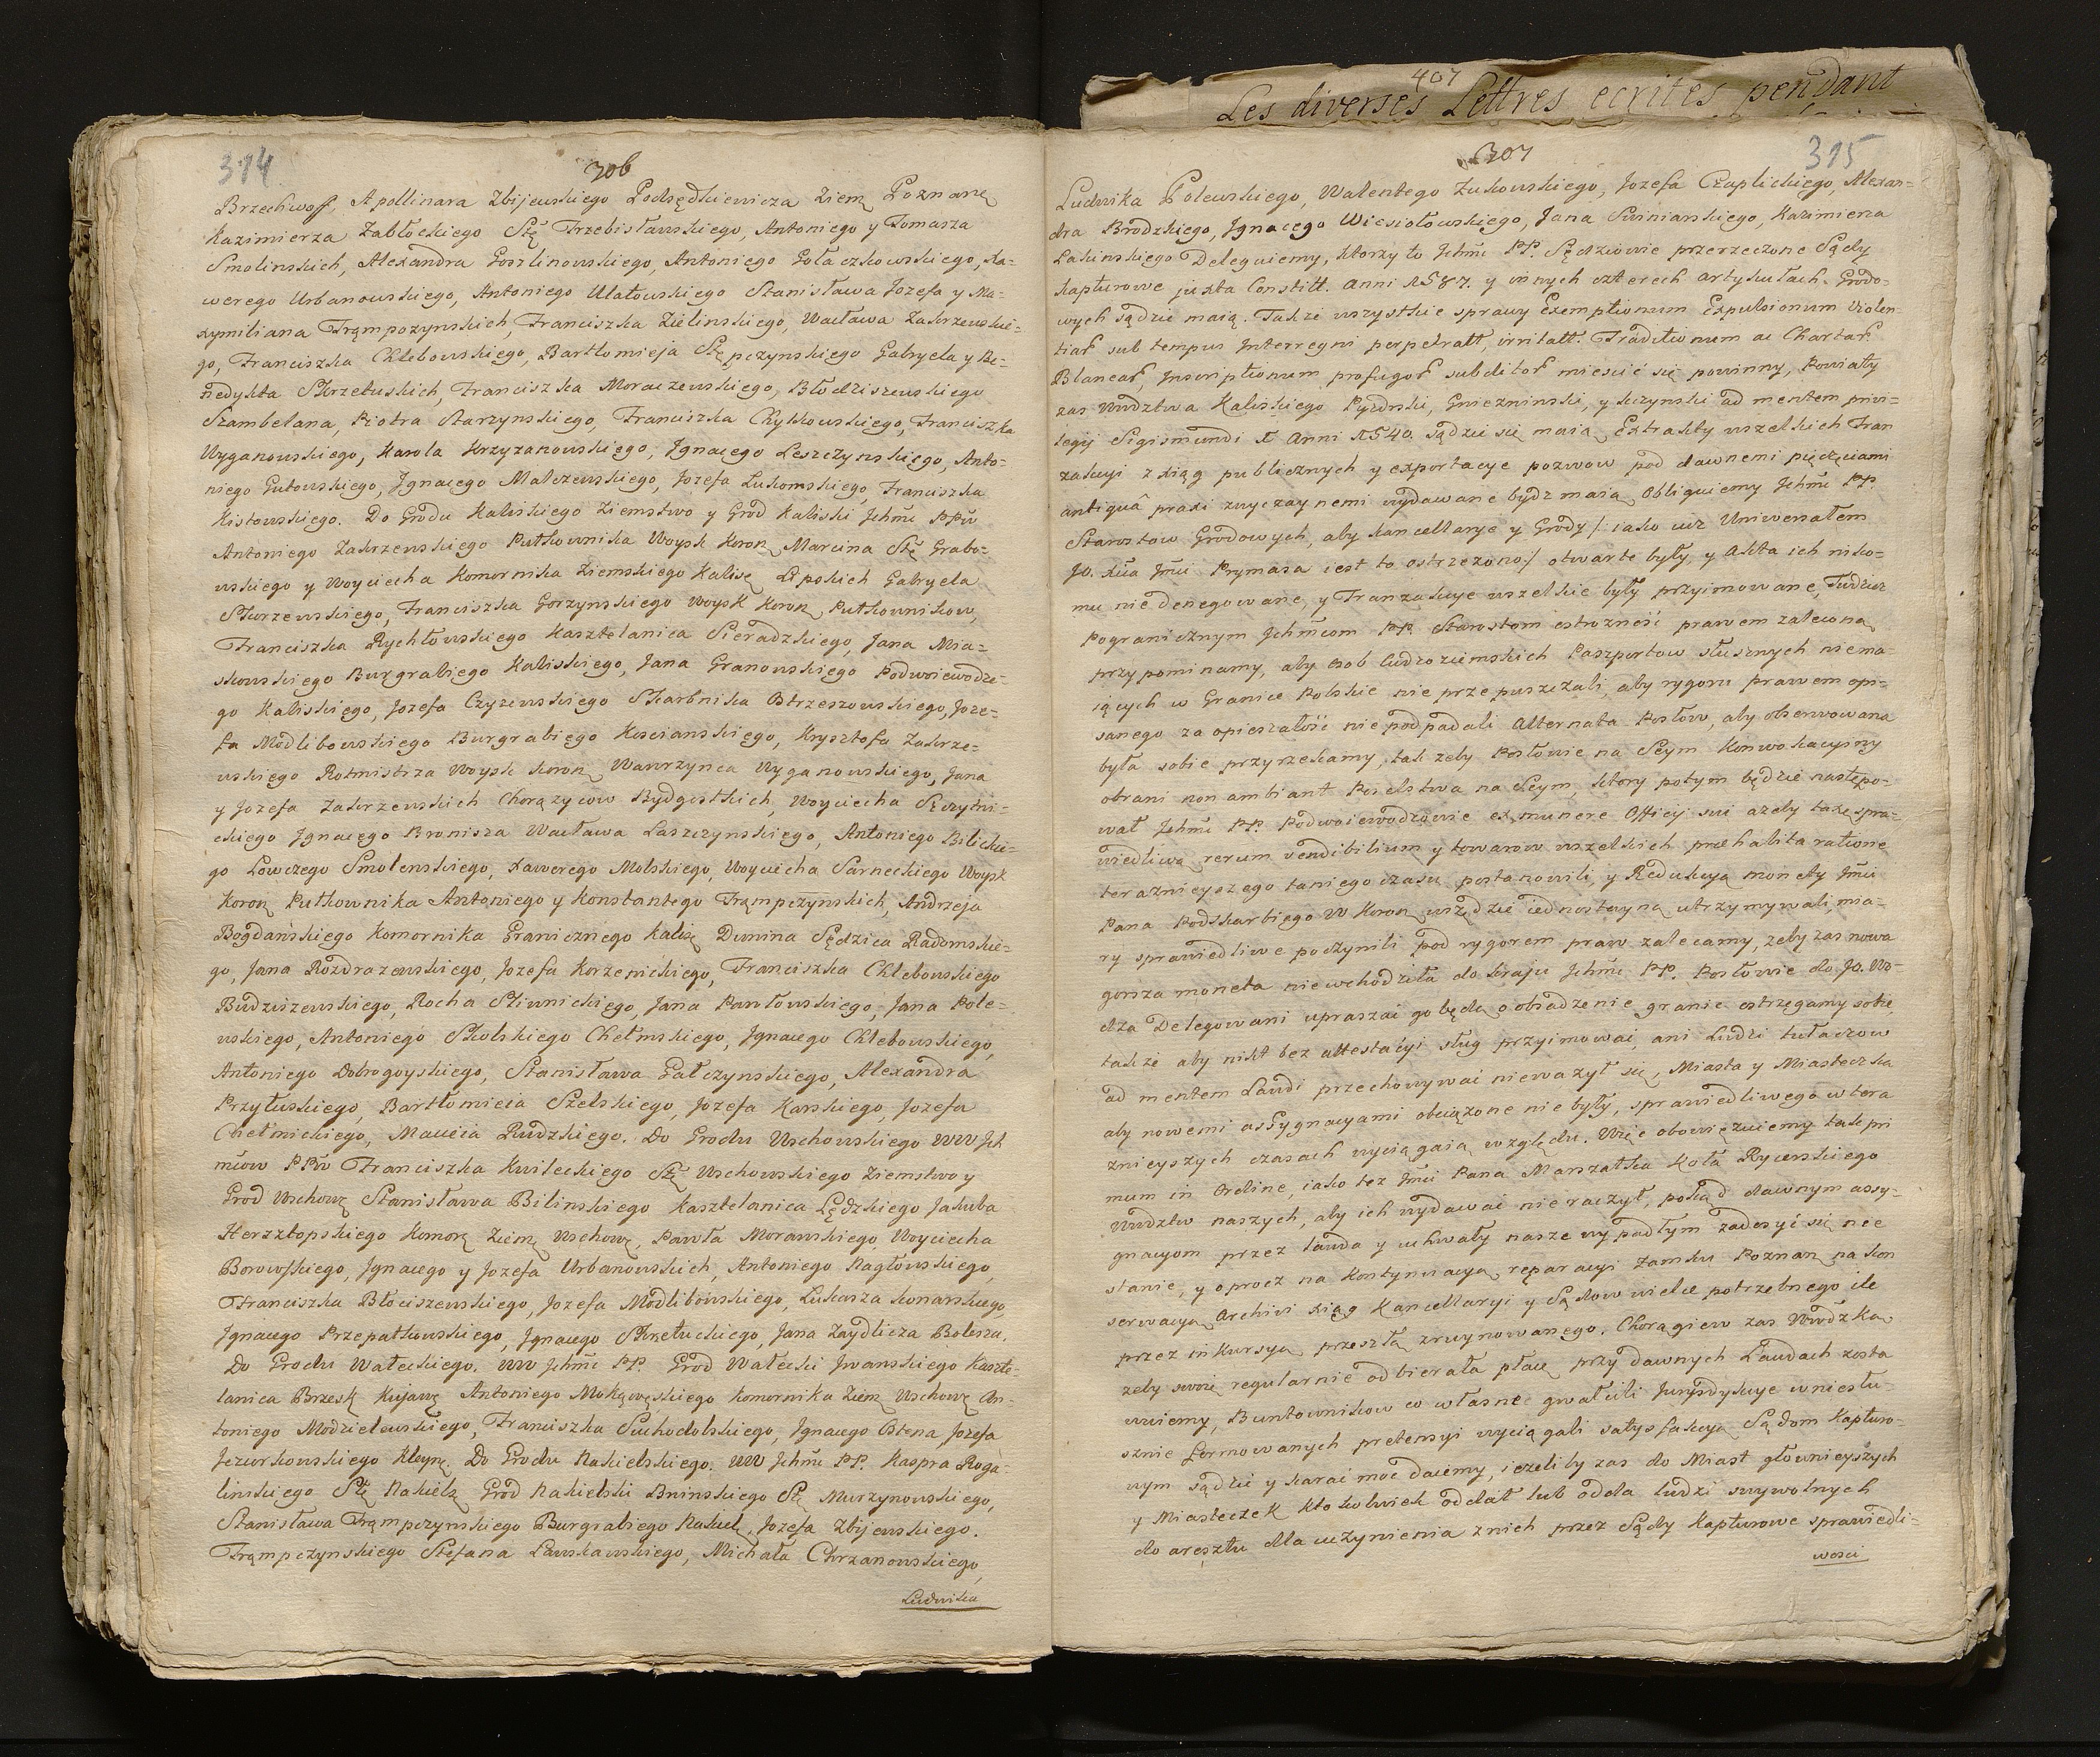 407
Les diverses Lettres ecrites pendant
314
306
Brzechwoff, Apollinara Zbijewskiego Podsędkiewicza Ziem Poznanę
Kazimierza Zabłockiego Stę Trzebisławskiego, Antoniego y Tomasza
Smolinskich, Alexandra Goslinowskiego, Antoniego Gołaczkowskiego, Xa=
werego Urbanowskiego, Antoniego Ulatowskiego Stanisława Jozefa y Ma=
xymiliana Trąmpczynskich, Franciszka Zielinskiego, Wacława Zakrzewskie=
go, Franciszka Chlebowskiego, Bartłomieja Stępczynskiego Gabryela y Be=
nedykta Skrzetuskich, Franciszka Moraczewskiego, Błodziszewskiego
Szambelana, Piotra Starzynskiego, Franciszka Chytkowskiego, Franciszka
Wyganowskiego, Karola Krzyzanowskiego, Jgnacego Leszczynskiego, Anto=
niego Gutowskiego, Jgnacego Malczewskiego, Jozefa Lukomskiego, Franciszka
Kistowskiego. Do Grodu Kaliskiego Ziemstwo y Grod Kaliski Jchmć PPw
Antoniego Zakrzewskiego Pułkownika Woysk Koron Marcina Stę Grabo=
wskiego y Woyciecha Komornika Ziemskiego Kalisę Lipskich Gabryela
Skorzewskiego, Franciszka Gorzynskiego Woysk Koron Pułkownikow,
Franciszka Rychłowskiego Kasztelanica Sieradzkiego, Jana Mia=
skowskiego Burgrabiego Kaliskiego, Jana Granowskiego Podwoiewodze=
go Kaliskiego, Jozefa Czyzewskiego Skarbnika Ostrzeszowskiego, Joze=
fa Modlibowskiego Burgrabiego Koscianskiego, Krysztofa Zakrze=
wskiego Rotmistrza Woysk Koron Wawrzynca Wyganowskiego, Jana
y Jozefa Zakrzewskich Chorązycow Bydgostkich, Woyciecha Sęczyni=
ckiego Jgnacego Bronisza Wacława Laszczynskiego, Antoniego Bilickie=
go Lowczego Smolenskiego, Xawerego Molskiego, Woyciecha Sarneckiego Woysk
Koron Pułkownika Antoniego y Konstantego Trąmpczynskich, Andrzeja
Bogdańskiego Komornika Granicznego Kalisę Dunina Sędzica Radomskie=
go, Jana Rozdrazewskiego, Jozefa Korzenickiego, Franciszka Chlebowskiego
Budziszewskiego, Rocha Sliwnickiego, Jana Pawłowskiego, Jana Pole=
wskiego, Antoniego Skolskiego Chełmskiego, Jgnacego Chlebowskiego,
Antoniego Dobrogoyskiego, Stanisława Gałczynskiego, Alexandra
Przyłuskiego, Bartłomieia Szelskiego, Jozefa Karskiego, Jozefa
Chełmickiego, Macieia Rudzkiego. Do Grodu Wschowskiego WW Jch
mćiow PPw Franciszka Kwileckiego Stę Wschowskiego Ziemstwo y
Grod Wschowę Stanisława Bilinskiego Kasztelanica Lędzkiego Jakuba
Hersztopskiego Komorę Ziemę Wschowę, Pawła Morawskiego, Woyciecha
Borowskiego, Jgnacego y Jozefa Urbanowskich, Antoniego Nagłowskiego,
Franciszka Błociszewskiego, Jozefa Modlibowskiego, Lukasza Konarskiego,
Jgnacego Przepałkowskiego, Jgnacego Skretuckiego, Jana Zaydlicza Bolesza,
Do Grodu Wałeckiego. WW Jchmć PP. Grod Wałecki Jwanskiego Kaszte=
lanica Brzesk Kujawę Antoniego Mokąwęskiego Komornika Ziem Wschowę An=
toniego Modzielewskiego, Franciszka Suchodolskiego, Jgnacego Ostena Jozefa
Jezurkowskiego Kleynę. Do Grodu Nakielskiego. WW Jchmć PP. Kaspra Roga=
linskiego Stę Nakielę Grod Nakielski Bninskiego Stę Murzynowskiego,
Stanisława Trąmpczynskiego Burgrabiego Nakielę, Jozefa Zbijewskiego.
Trąmpczynskiego Stefana Lawskawskiego, Michała Chrzanowskiego,
Ludwika
307
315
Ludwika Polewskiego, Walentego Zukowskiego, Jozefa Czaplickiego, Alexan=
dra Brodzkiego, Jgnacego Wiesiołowskiego, Jana Swinarskiego, Kazimierza
Lakinskiego Deleguiemy, ktorzy to Jchmć PP. Sędziowie przerzeczone Sądy
Kapturowe juxta Constitt. Anni 1587. y innych czterech artykułach Grodo=
wych sądzic maią. Takze wszystkie sprawy Exemptionum Expulsionum Violen=
tiar sub tempus Jnterregni perpetratt, irritatt. Traditionum ac Chartar
Blancar, Jnscriptionum profugor subditor miescic się powinny, Powiaty
zas Wwdztwa Kaliskiego Pyzdrski, Gnieznin­ski, y Kcynski ad mentem privi=
legij Sigismundi I Anni 1540. sądzic się maią, Extrakty wszelkich Tran
zakcyi z xiąg publicznych y exportacye pozwow pod dawnemi pięczęciami
antiquâ praxi zwyczaynemi wydawane bydz maią, Obliguiemy Jchmć PP.
Starostow Grodowych, aby Kancellarye y Grody /: iako iuz Uniwersałem
JO. Xcia Jmci Prymasa iest to ostrzezono:/ otwarte były, y Akta ich niko=
mu nie denegowane, y Tranzakcye wszelkie były przyimowane, Tudziez
Pogranicznym Jchmćiom PP. Starostom ostroznosć prawem zaleconą
przypominamy, aby osob Cudzoziemskich Paszportow słusznych niema=
iących w Granice Polskie nie przepuszczali, aby rygoru prawem opi=
sanego za opieszałość nie podpadali Alternata Posłow, aby obserwowana
była sobie przyrzekamy, tak zeby Posłowie na Seym Konwokacyiny
obrani non ambiant Poselstwa na Seym, ktory potym będzie następo=
wał Jchmć PP. Podwoiewodzowie ex munere Officij sui azeby taxę spra=
wiedliwą rerum vendibilium y towarow wszelkich præhabita ratione
teraznieyszego taniego czasu postanowili, y Redukcyą monety Jmci
Pana Podskarbiego W Koron wszędzie iednostayną utrzymywali, mia=
ry sprawiedliwe poczynili pod rygorem praw zalecamy, zeby zas nowa
gorsza moneta niewchodziła do kraju Jchmć PP. Posłowie do JO. Wo=
dza Delegowani upraszać go będą o obsadzenie granic ostrzegamy sobie,
takze aby nikt bez attestacyi sług przyimować, ani Ludzi tułaczow
ad mentem Laudi przechowywać niewazył się, Miasta y Miasteczka
aby nowemi assygnacyami obciązone nie były, sprawiedliwego w tera
znieyszych czasach wyciągaią względu. Więc obowięzuiemy tak pri
mum in Ordine, iako tez Jmci Pana Marszałka Koła Rycerskiego
Wwdztw naszych, aby ich wydawać nie raczył, pokąd dawnym assy=
gnacyom przez lauda y uchwały nasze wypadłym zadosyć się nie
stanie, y oprocz na kontynuacyą reparacyi Zamku Poznan na kon
serwacyą Archivi xiąg Kancellaryi y Sądow wielce potrzebnego ile
przez inkursyą przeszłą zruynowanego. Chorągiew zas Wwdzka
zeby swoię regularnie odbierała płacę przy dawnych Laudach zosta
wuiemy, Buntownikow co własne gwałcili Jurysdykcye w niesłu=
sznie formowanych pretensyi wyciągali satysfakcyą Sądom Kapturo=
wym sądzić y karać moc daiemy, iezeliby zas do Miast głownieyszych
y Miasteczek ktokolwiek oddał lub odda ludzi swywolnych
do aresztu dla uczynienia z nich przez Sądy Kapturowe sprawiedli=
wosci